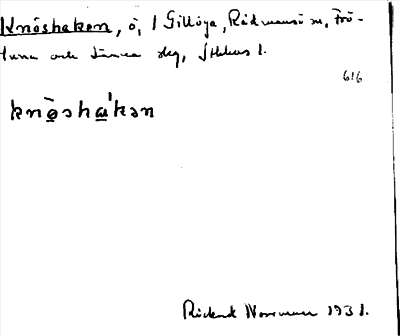 Knöshakon, ö, i Gillöga, Rådmansö sn, Frö-
tuna och Länna skg, Sthlms l.
616
knö̀sha'kən
Rickard Wormman 1931.